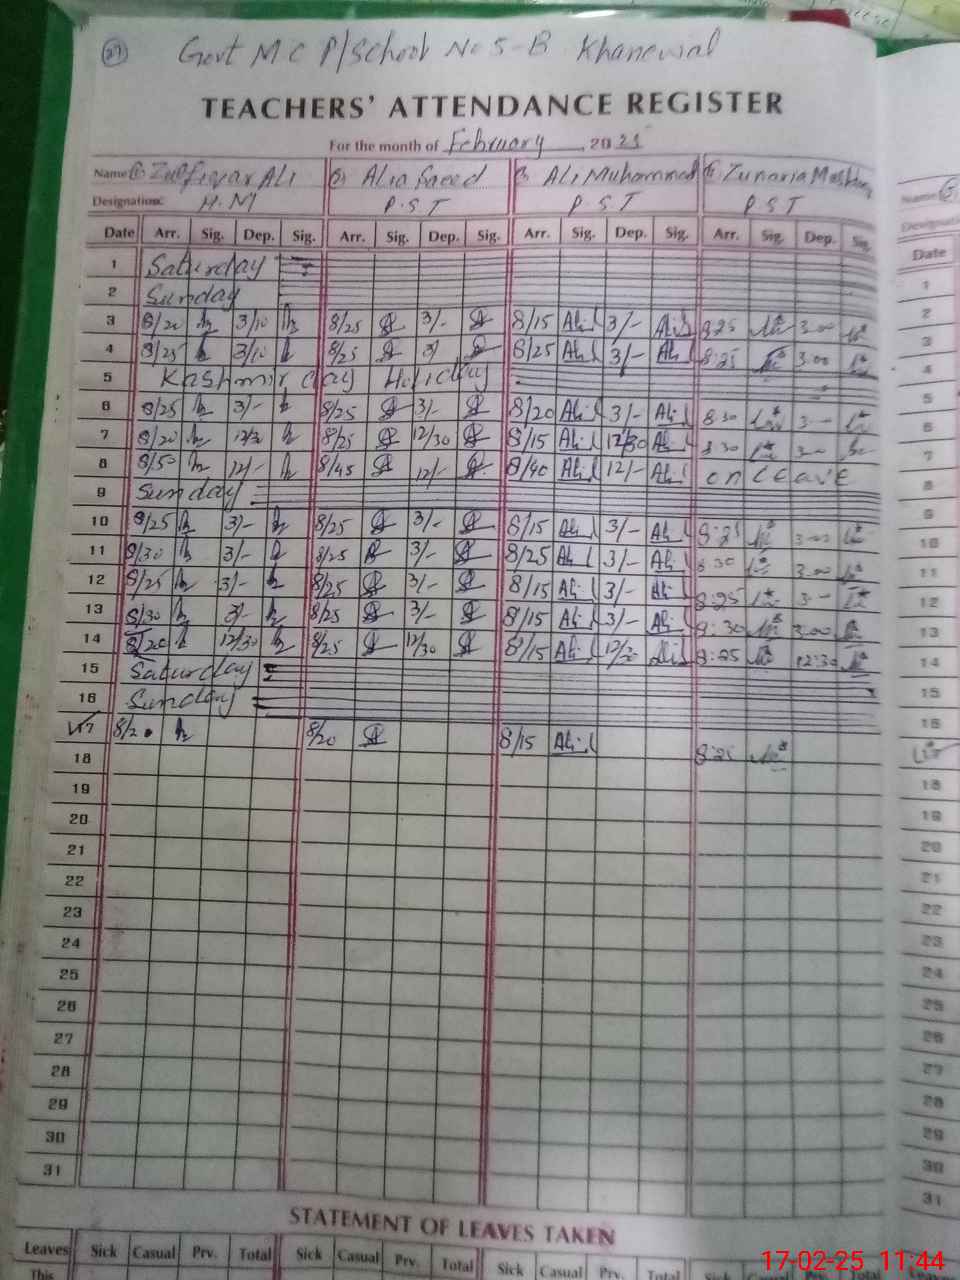 27 Govt M C P/School No 5-B Khanewal
TEACHERS' ATTENDANCE REGISTER
For the month of February 20 25
Name ① Zulfiqar Ali ② Alia Saeed ③ Ali Muhammad ④ Zunaria
Designation: H.M P.S.T P.S.T P.S.T
Date Arr. Sig. Dep. Sig. Arr. Sig. Dep. Sig. Arr. Sig. Dep. Sig. Arr. Sig. Dep. Sig.
1 Saturday
2 Sunday
3 8/20 3/10 8/25 3/- 8/15 Ali 3/- Ali 8:25 3:00
4 8/25 3/10 8/25 3/ 8/25 Ali 3/- Ali 8:25 3:00
5 Kashmir day Holiday
6 8/25 3/- 8/25 3/- 8/20 Ali 3/- Ali 8:30 3:00
7 8/20 12/30 8/25 12/30 8/15 Ali 12/30 Ali 8:30
8 8/50 12/- 8/45 12/- 8/40 Ali 12/- Ali on leave
9 Sunday
10 8/25 3/- 8/25 3/- 8/15 Ali 3/- Ali 8:25 3:00
11 8/30 3/- 8/25 3/- 8/25 Ali 3/- Ali 8:30 3:00
12 8/25 3/- 8/25 3/- 8/15 Ali 3/- Ali 8:25
13 8/30 3/- 8/25 3/- 8/15 Ali 3/- Ali 8:30 3:00
14 8/20 12/30 8/25 12/30 8/15 Ali 12/30 Ali 8:25 12:30
15 Saturday
16 Sunday
17 8/20 8/20 8/15 Ali 8:25
18
19
20
21
22
23
24
25
26
27
28
29
30
31
STATEMENT OF LEAVES TAKEN
Leaves Sick Casual Prv. Total Sick Casual Prv. Total Sick Casual Prv. Total Sick Casual Prv. Total
This
17-02-25 11:44